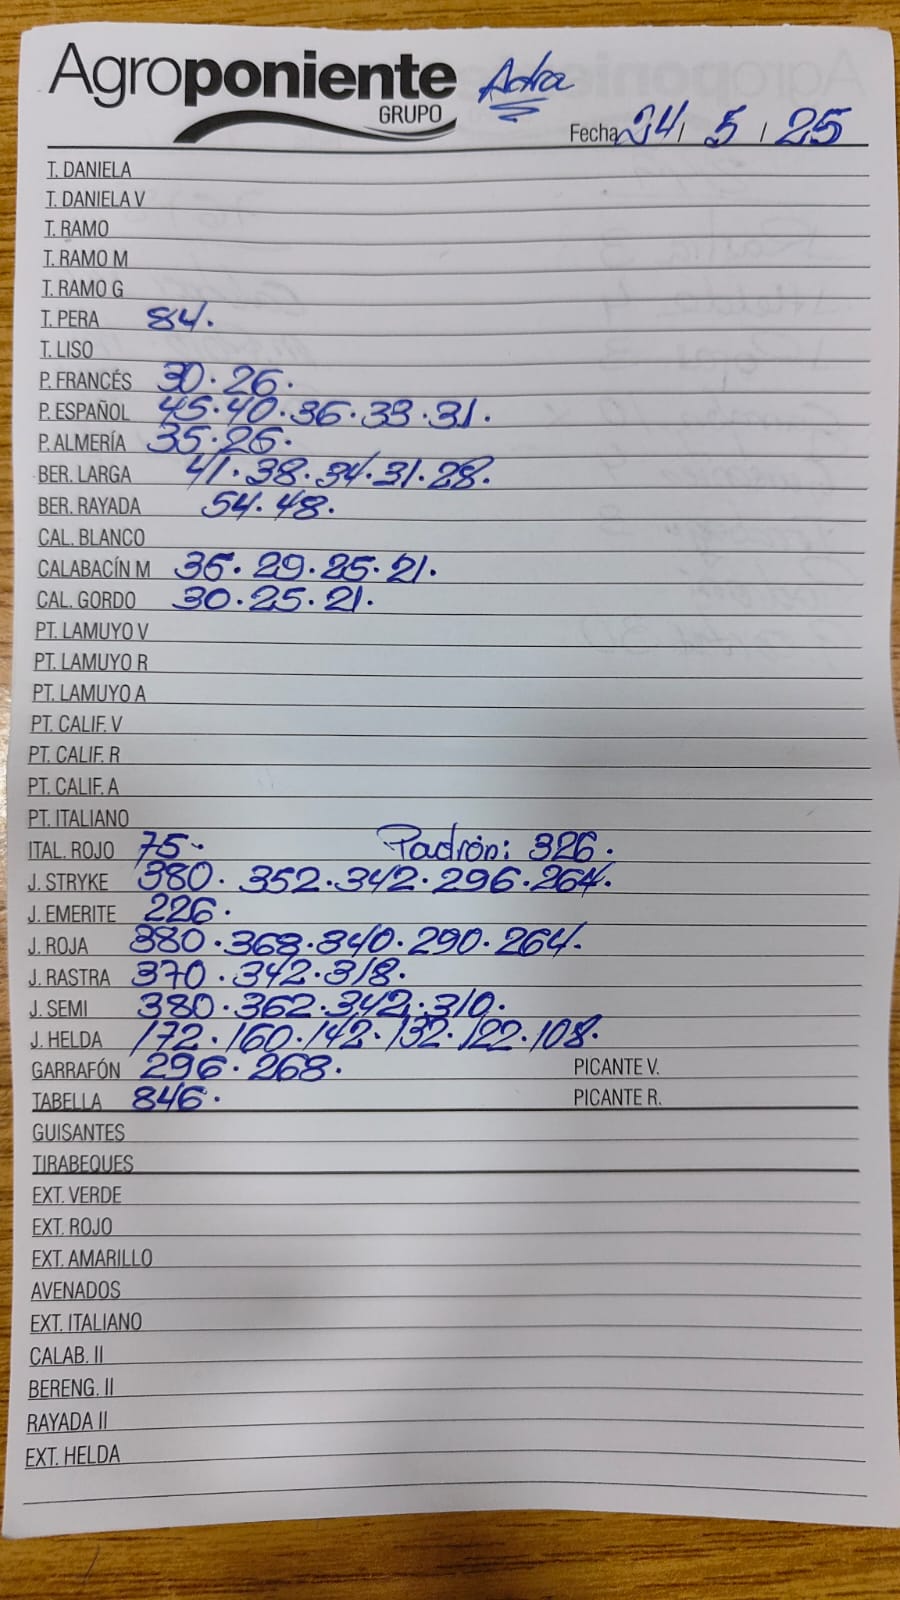 Agroponiente Adra
GRUPO
Fecha 24 / 5 / 25
T. DANIELA
T. DANIELA V
T. RAMO
T. RAMO M
T. RAMO G
T. PERA 84.
T. LISO
P. FRANCÉS 30. 26.
P. ESPAÑOL 45. 40. 36. 33. 31.
P. ALMERÍA 35. 26.
BER. LARGA 41. 38. 34. 31. 28.
BER. RAYADA 54. 48.
CAL. BLANCO
CALABACÍN M 35. 29. 25. 21.
CAL. GORDO 30. 25. 21.
PT. LAMUYO V
PT. LAMUYO R
PT. LAMUYO A
PT. CALIF. V
PT. CALIF. R
PT. CALIF. A
PT. ITALIANO
ITAL. ROJO 75. Padrón: 326.
J. STRYKE 380. 352. 342. 296. 264.
J. EMERITE 226.
J. ROJA 380. 368. 340. 290. 264.
J. RASTRA 370. 342. 318.
J. SEMI 380. 362. 342. 310.
J. HELDA 172. 160. 142. 132. 122. 108.
GARRAFÓN 296. 268. PICANTE V.
TABELLA 846. PICANTE R.
GUISANTES
TIRABEQUES
EXT. VERDE
EXT. ROJO
EXT. AMARILLO
AVENADOS
EXT. ITALIANO
CALAB. II
BERENG. II
RAYADA II
EXT. HELDA